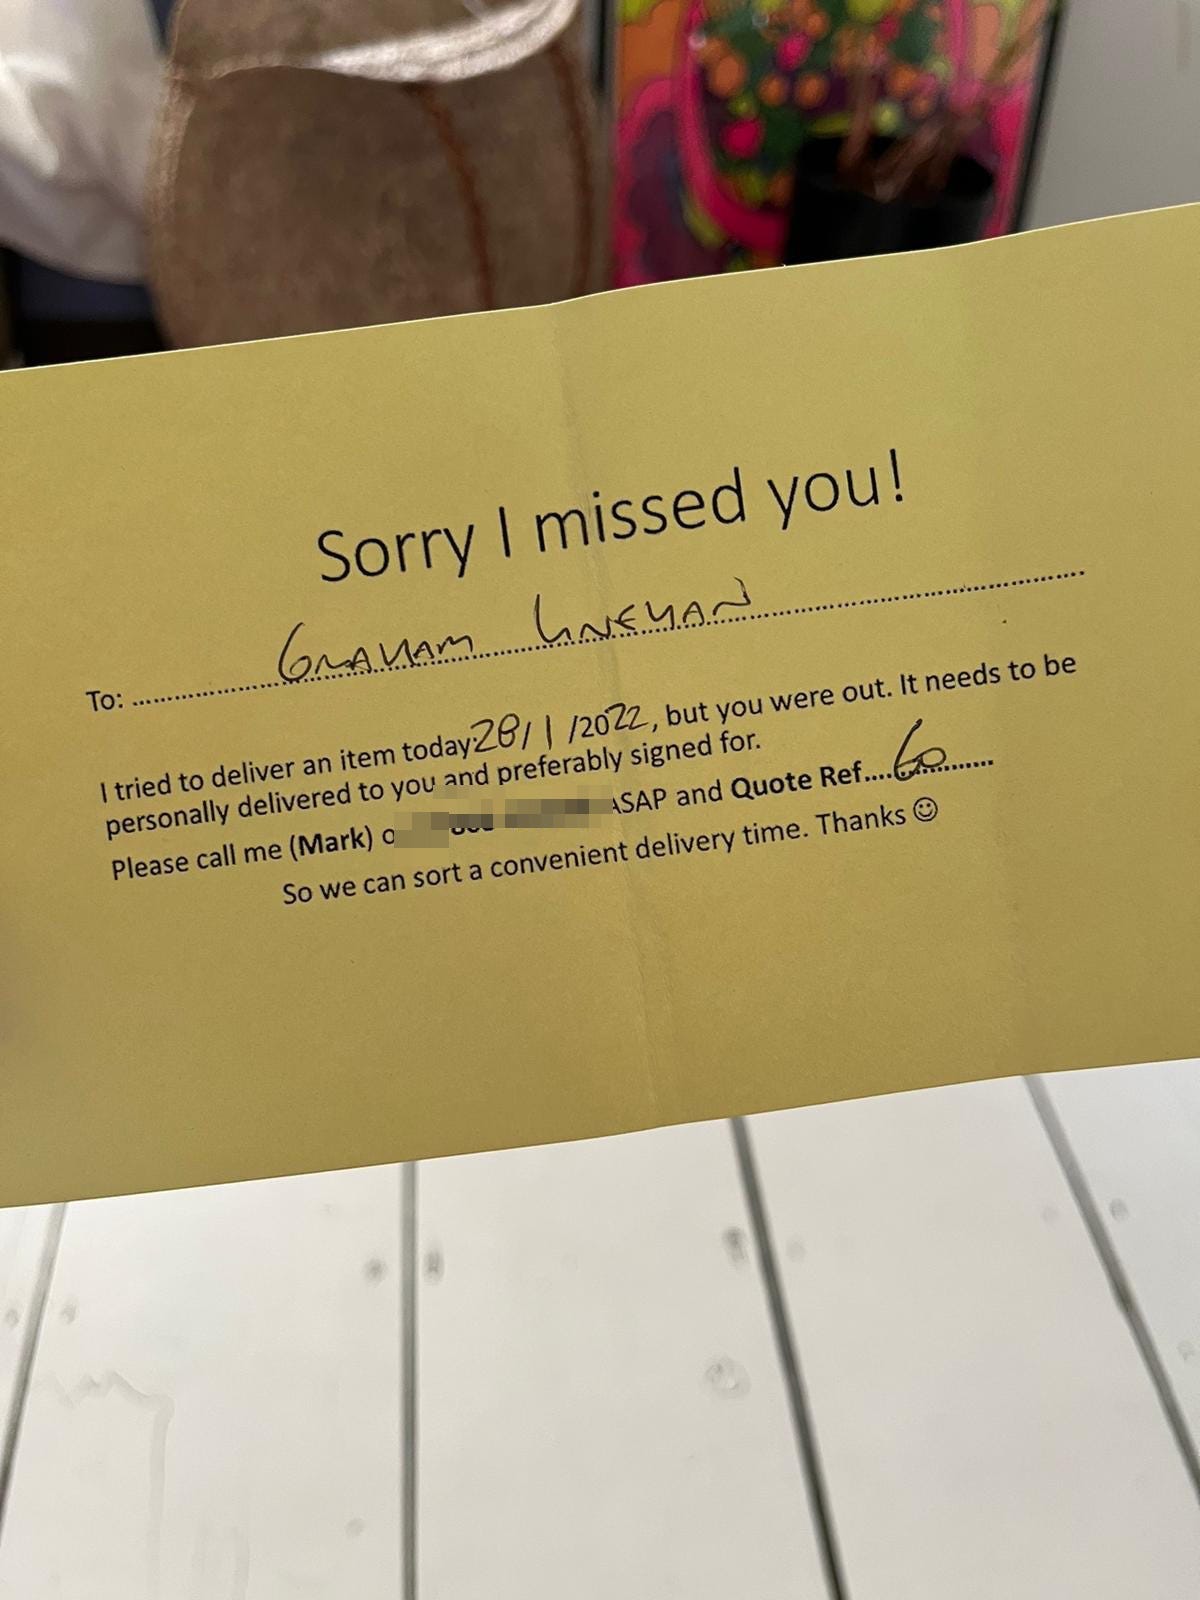 Sorry I missed you!
To: GRAHAM LINEHAN
I tried to deliver an item today 28/1/2022, but you were out. It needs to be
personally delivered to you and preferably signed for.
Please call me (Mark) ASAP and Quote Ref....60............
So we can sort a convenient delivery time. Thanks ☺